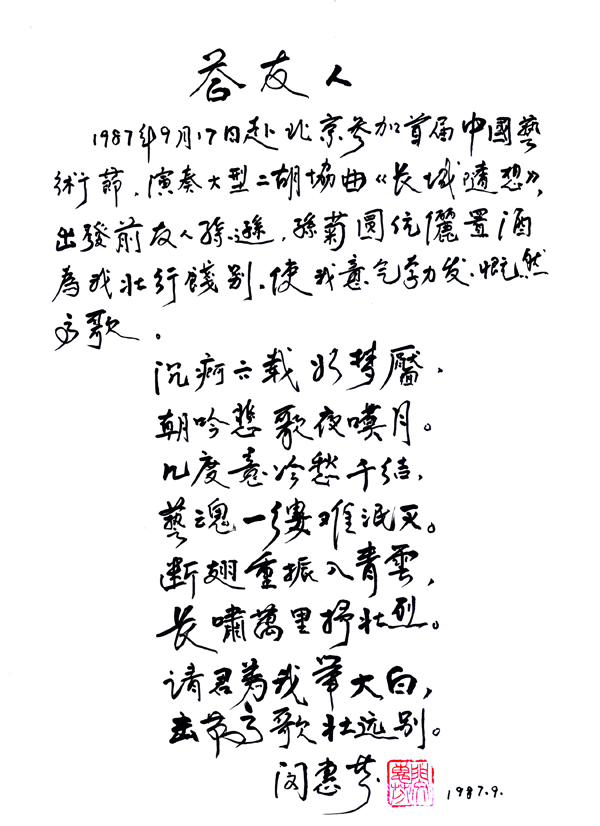 答友人
1987年9月17日赴北京参加首届中國藝
術節，演奏大型二胡協曲《长城隨想》，
出發前友人孫遜，孫菊圆伉儷置酒
為我壮行餞别，使我意气勃发，慨然
高歌．
沉疴六载如梦魘，
朝吟悲歌夜嘆月。
几度意冷愁千结，
藝魂一缕难泯灭。
断翅重振入青雲，
长嘯萬里抒壮烈。
请君為我举大白，
击節高歌壮远别。
闵惠芬 1987.9.